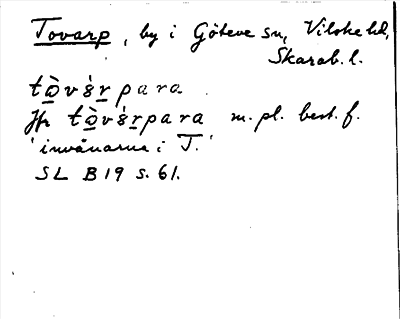 Tovarp, by i Göteve sn, Vilske hd,
Skarab. l.
tò̠vs̀r̠para
Jfr tò̠vs̀r̠para m. pl. best. f.
'invånarna i T.'
SL B19 s. 61.